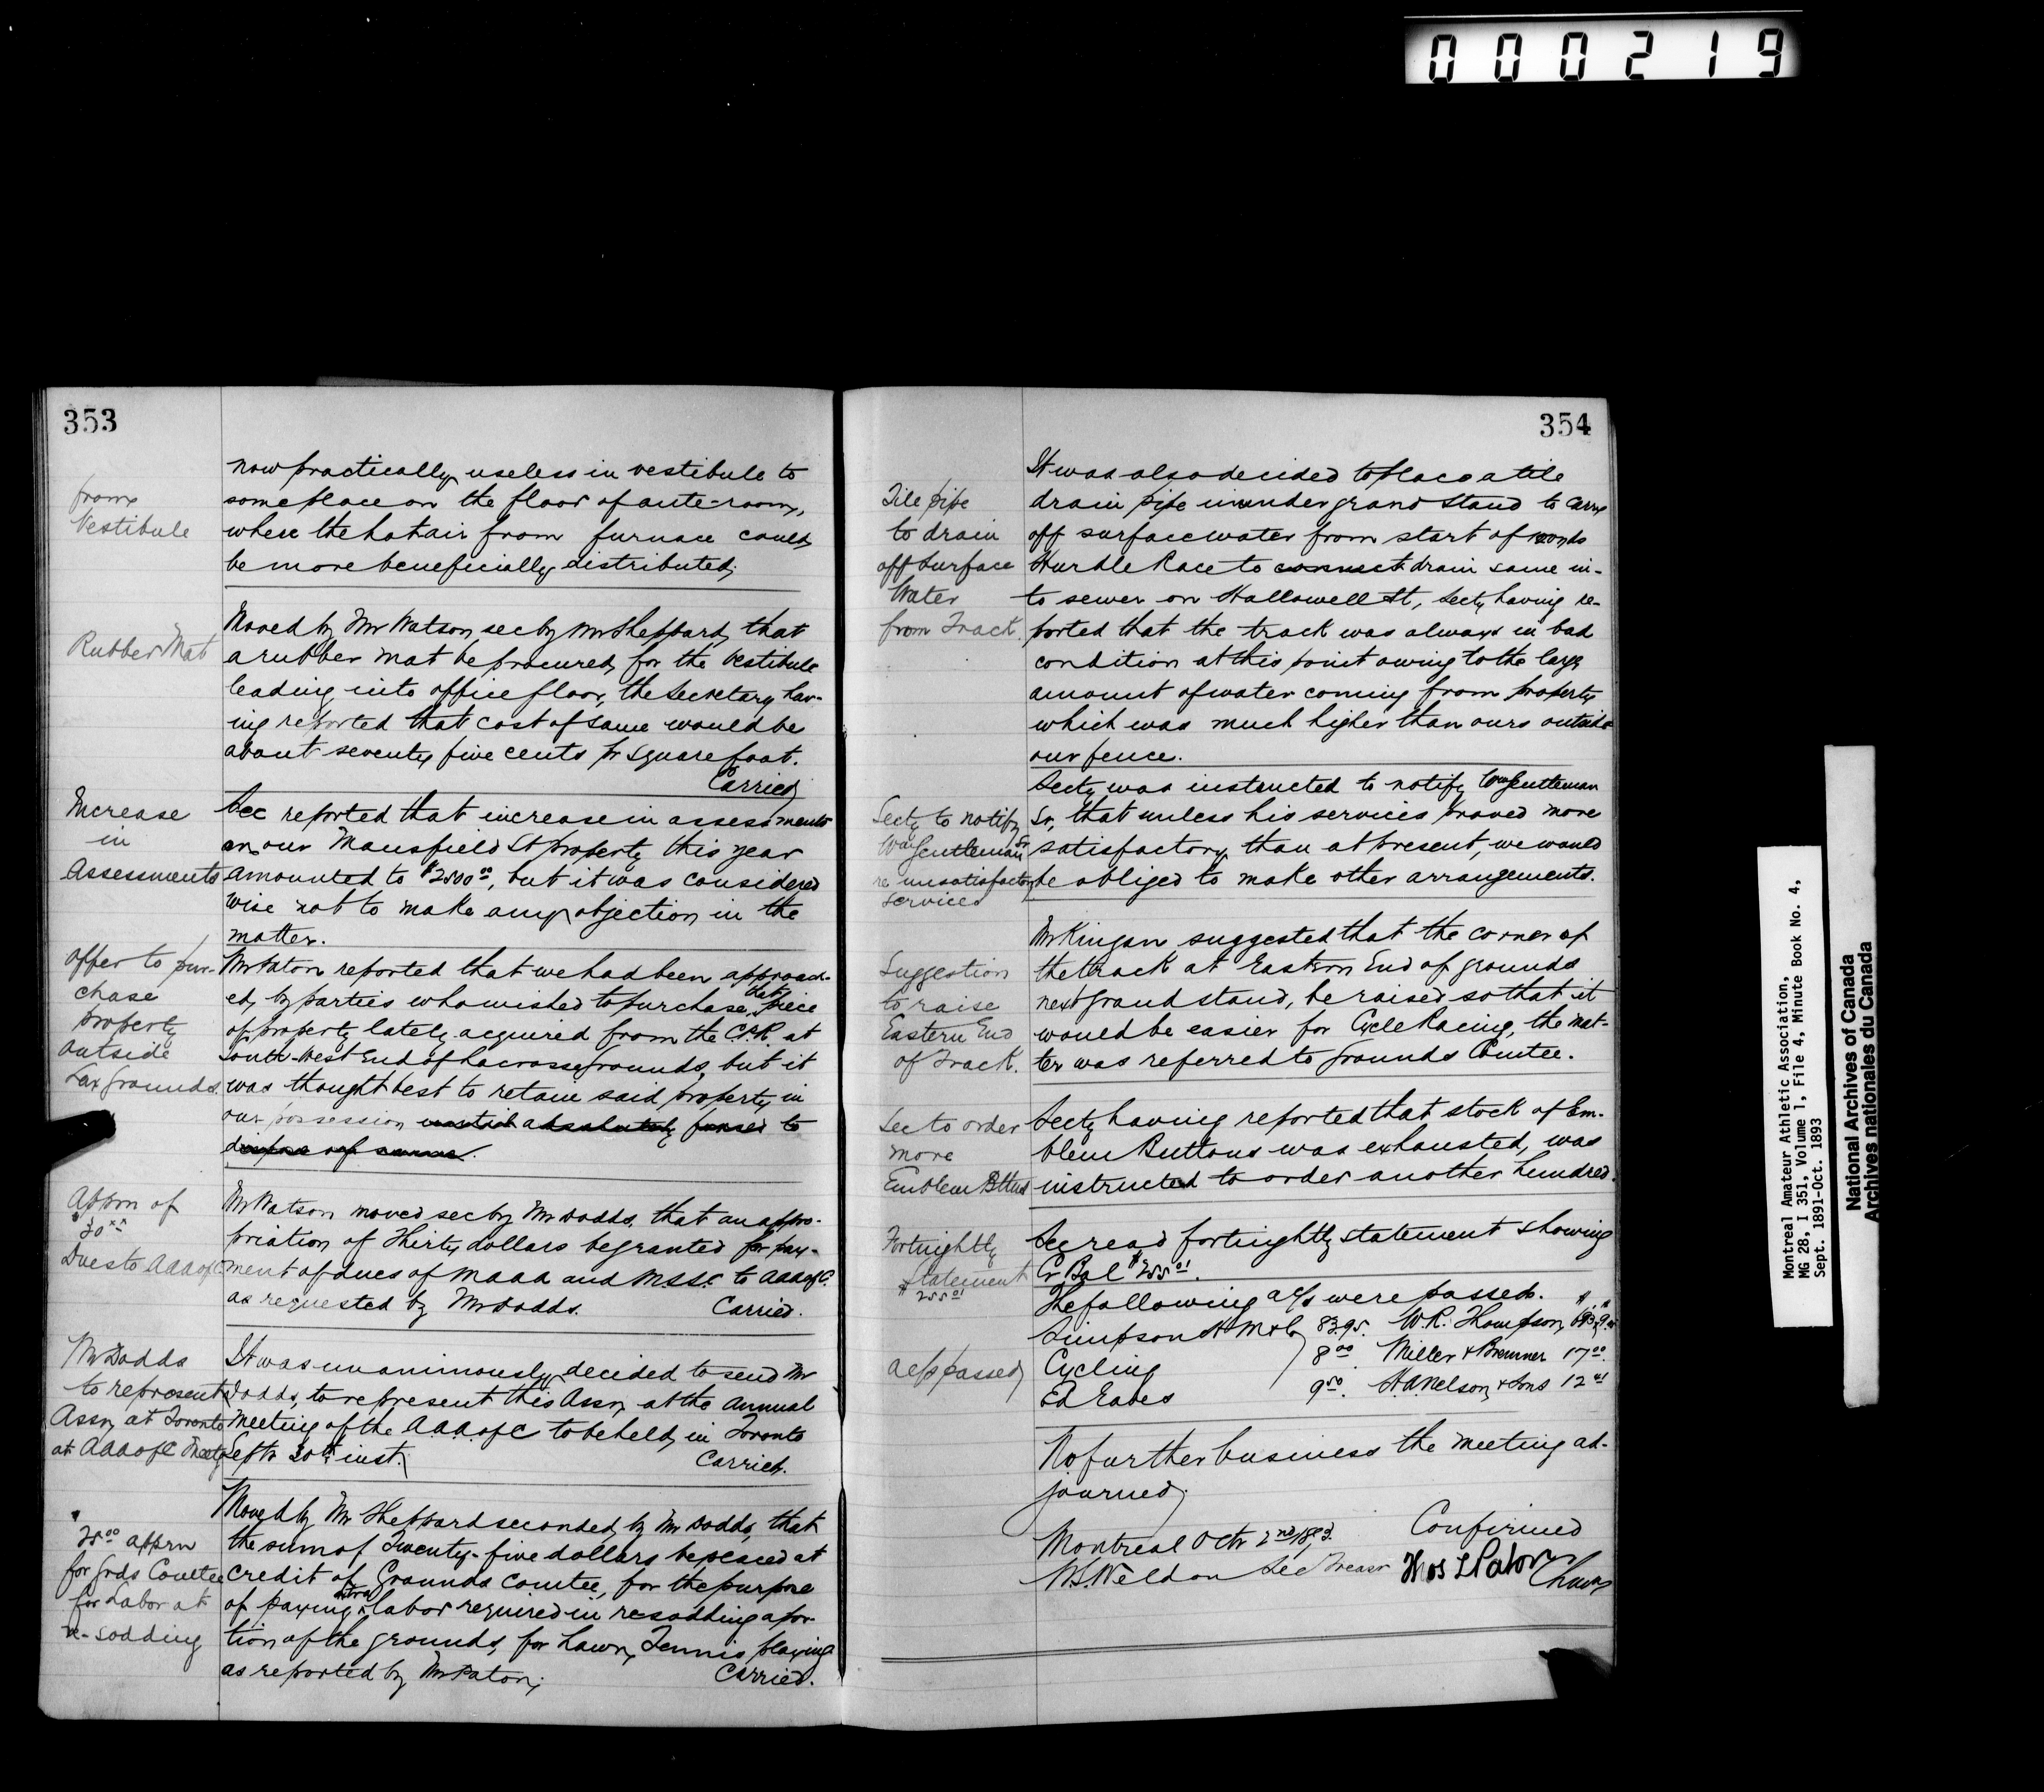 000219
353
from
Vestibule
now practically useless in vestibule to
some place on the floor of ante-room,
where the hot air from furnace could
be more beneficially distributed,
Rubber Mat
Moved by Mr Watson, sec by Mr Sheppard, that
a rubber mat be procured, for the Vestibule
leading into office floor, the Secretary hav-
ing reported that cost of same would be
about seventy five cents pr square foot.
Carried
Increase
in
Assessments
Sec reported that increase in assessments
on our Mansfield St property this year
amounted to $2500.00, but it was considered
wise not to make any objection in the
matter.
Offer to pur-
chase
property
outside
Lax Grounds.
Mr Paton reported that we had been approach-
ed, by parties who wished to purchase that piece
of property lately acquired from the C.P.R. at
South-West End of Lacrosse Grounds, but it
was thought best to retain said property in
our possession until absolutely forced to
dispose of same.
Apprn of
$30.00
Dues to AAAofC.
Mr Watson moved sec by Mr Dodds, that an appro-
priation of Thirty dollars be granted for pay-
ment of dues of MAAA and M.S.S.C. to AAAofC.
as requested by Mr Dodds. Carried.
Mr Dodds
to represent
Assn, at Toronto
at AAAofC Meetg
It was unanimously decided to send Mr
Dodds, to represent this Assn, at the Annual
Meeting of the A.A.A. of C to be held, in Toronto
Septr 30th inst. Carried.
25.00 apprn
for Grds Comtee
for Labor at
re-sodding
Moved by Mr Sheppard seconded, by Mr Dodds, that
the sum of Twenty-five dollars be placed at
credit of Grounds Comtee, for the purpose
of paying extra labor required in resodding a por-
tion of the grounds, for Lawn Tennis playing
as reported by Mr Paton, Carried.
354
Tile pipe
to drain
off Surface
Water
from Track.
It was also decided to place a tile
drain pipe in under grand stand to carry
off surface water from start of 120 yds
Hurdle Race to connect drain same in-
to sewer on Hallowell St, Secty having re-
ported that the track was always in bad
condition at this point owing to the large
amount of water coming from property
which was much higher than ours outside
our fence.
Secty to notify
Wm Gentleman Sr
re unsatisfactory
services
Secty was instructed to notify Wm Gentleman
Sr, that unless his services proved more
satisfactory than at present, we would
be obliged to make other arrangements.
Suggestion
to raise
Eastern End
of Track.
Mr Kingan suggested that the corner of
the track at Eastern End of grounds
next grand stand, be raised so that it
would be easier for Cycle Racing, the mat-
ter was referred to Grounds Comtee.
Sec to order
more
Emblem Bttns
Secty having reported that stock of Em-
blem Buttons was exhausted, was
instructed to order another hundred.
Fortnightly
Statement
$255.01
Sec read fortnightly statement showing
Cr Bal $255.01.
a/cs passed
The following a/cs were passed.
Simpson H M & Co 83.95. W.R. Thompson,
Cycling 8.00 Miller & Bremner 17.00.
Ed Eaves 9.50. H.A. Nelson & Sons 12.41
No further business the meeting ad-
journed,
Montreal Octr 2nd/93. Confirmed
W.S. Weldon Sec Treasr Thos L Paton
Chairn
Montreal Amateur Athletic Association,
MG 28, I 351, Volume 1, File 4, Minute Book No. 4,
Sept. 1891-Oct. 1893
National Archives of Canada
Archives nationales du Canada